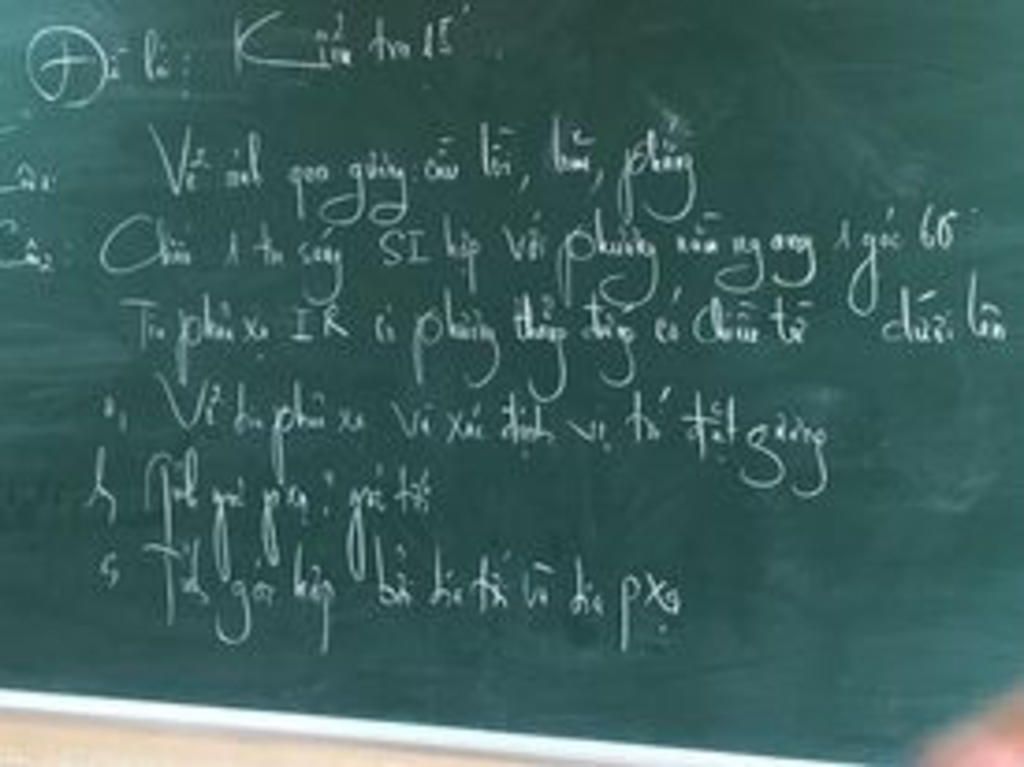 Đề lí: Kiểm tra 15'
Câu1: Vẽ ảnh qua gương cầu lồi, lõm, phẳng
Câu2: Chiếu 1 tia sáng SI hợp với phương nằm ngang 1 góc 60°
Tia phản xạ IR có phương thẳng đứng có chiều từ dưới lên
a, Vẽ tia phản xạ và xác định vị trí đặt gương
b, Tính góc pxạ, góc tới
c, Tính góc hợp bởi tia tới và tia pxạ